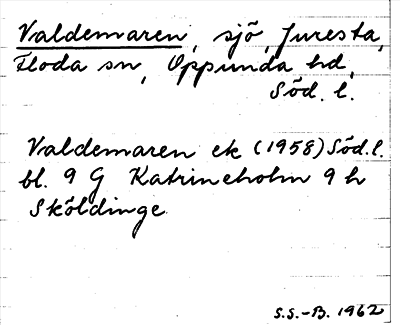 Valdemaren, sjö, Juresta,
Floda sn, Oppunda hd,
Söd. l.
Valdemaren ek (1958) Söd.l.
bl. 9 G Katrineholm 9 h
Sköldinge
S.S.-B. 1962